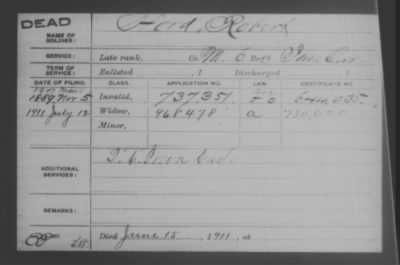 DEAD
NAME OF SOLDIER: Ford, Robert
SERVICE: Late rank, Co. M. 6 Reg't Ind. Cav
TERM OF SERVICE: Enlisted , 1 Discharged , 1
DATE OF FILING. CLASS. APPLICATION NO. LAW. CERTIFICATE NO.
1889 Nov. 5 Invalid, 737.351.
1911 July 12 Widow, 968478 a
Minor,
ADDITIONAL SERVICES:
REMARKS:
Died June 15, 1911, at